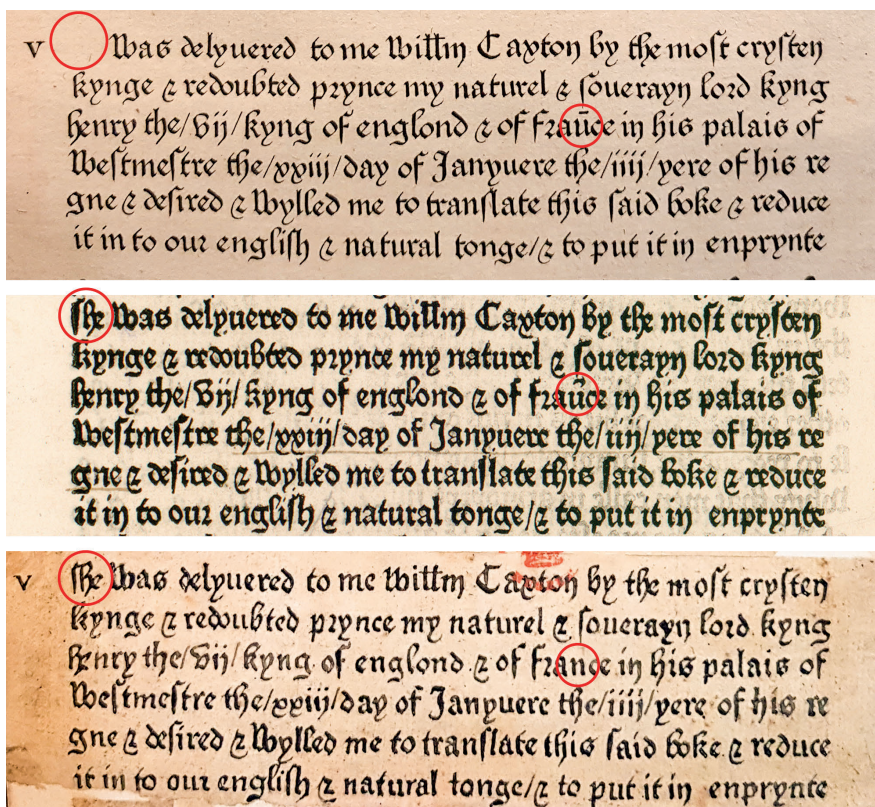 v Was delyuered to me Willm Caxton by the moſt cryſten
kynge & redoubted prynce my naturel & ſouerayn lord kyng
henry the/Vij/kyng of englond & of fraūce in his palais of
Weſtmeſtre the/xxiij/day of Janyuere the/iiij/yere of his re
gne & deſired & Wylled me to tranſlate this ſaid boke & reduce
it in to our engliſh & natural tonge/& to put it in enprynte
ſhe Was delyuered to me Willm Caxton by the moſt cryſten
kynge & redoubted prynce my naturel & ſouerayn lord kyng
henry the/Vij/kyng of englond & of fraūce in his palais of
Weſtmeſtre the/xxiij/day of Janyuere the/iiij/yere of his re
gne & deſired & Wylled me to tranſlate this ſaid boke & reduce
it in to our engliſh & natural tonge/& to put it in enprynte
v ſhe Was delyuered to me Willm Caxton by the moſt cryſten
kynge & redoubted prynce my naturel & ſouerayn lord kyng
henry the/Vij/kyng of englond & of france in his palais of
Weſtmeſtre the/xxiij/day of Janyuere the/iiij/yere of his re
gne & deſired & Wylled me to tranſlate this ſaid boke & reduce
it in to our engliſh & natural tonge/& to put it in enprynte